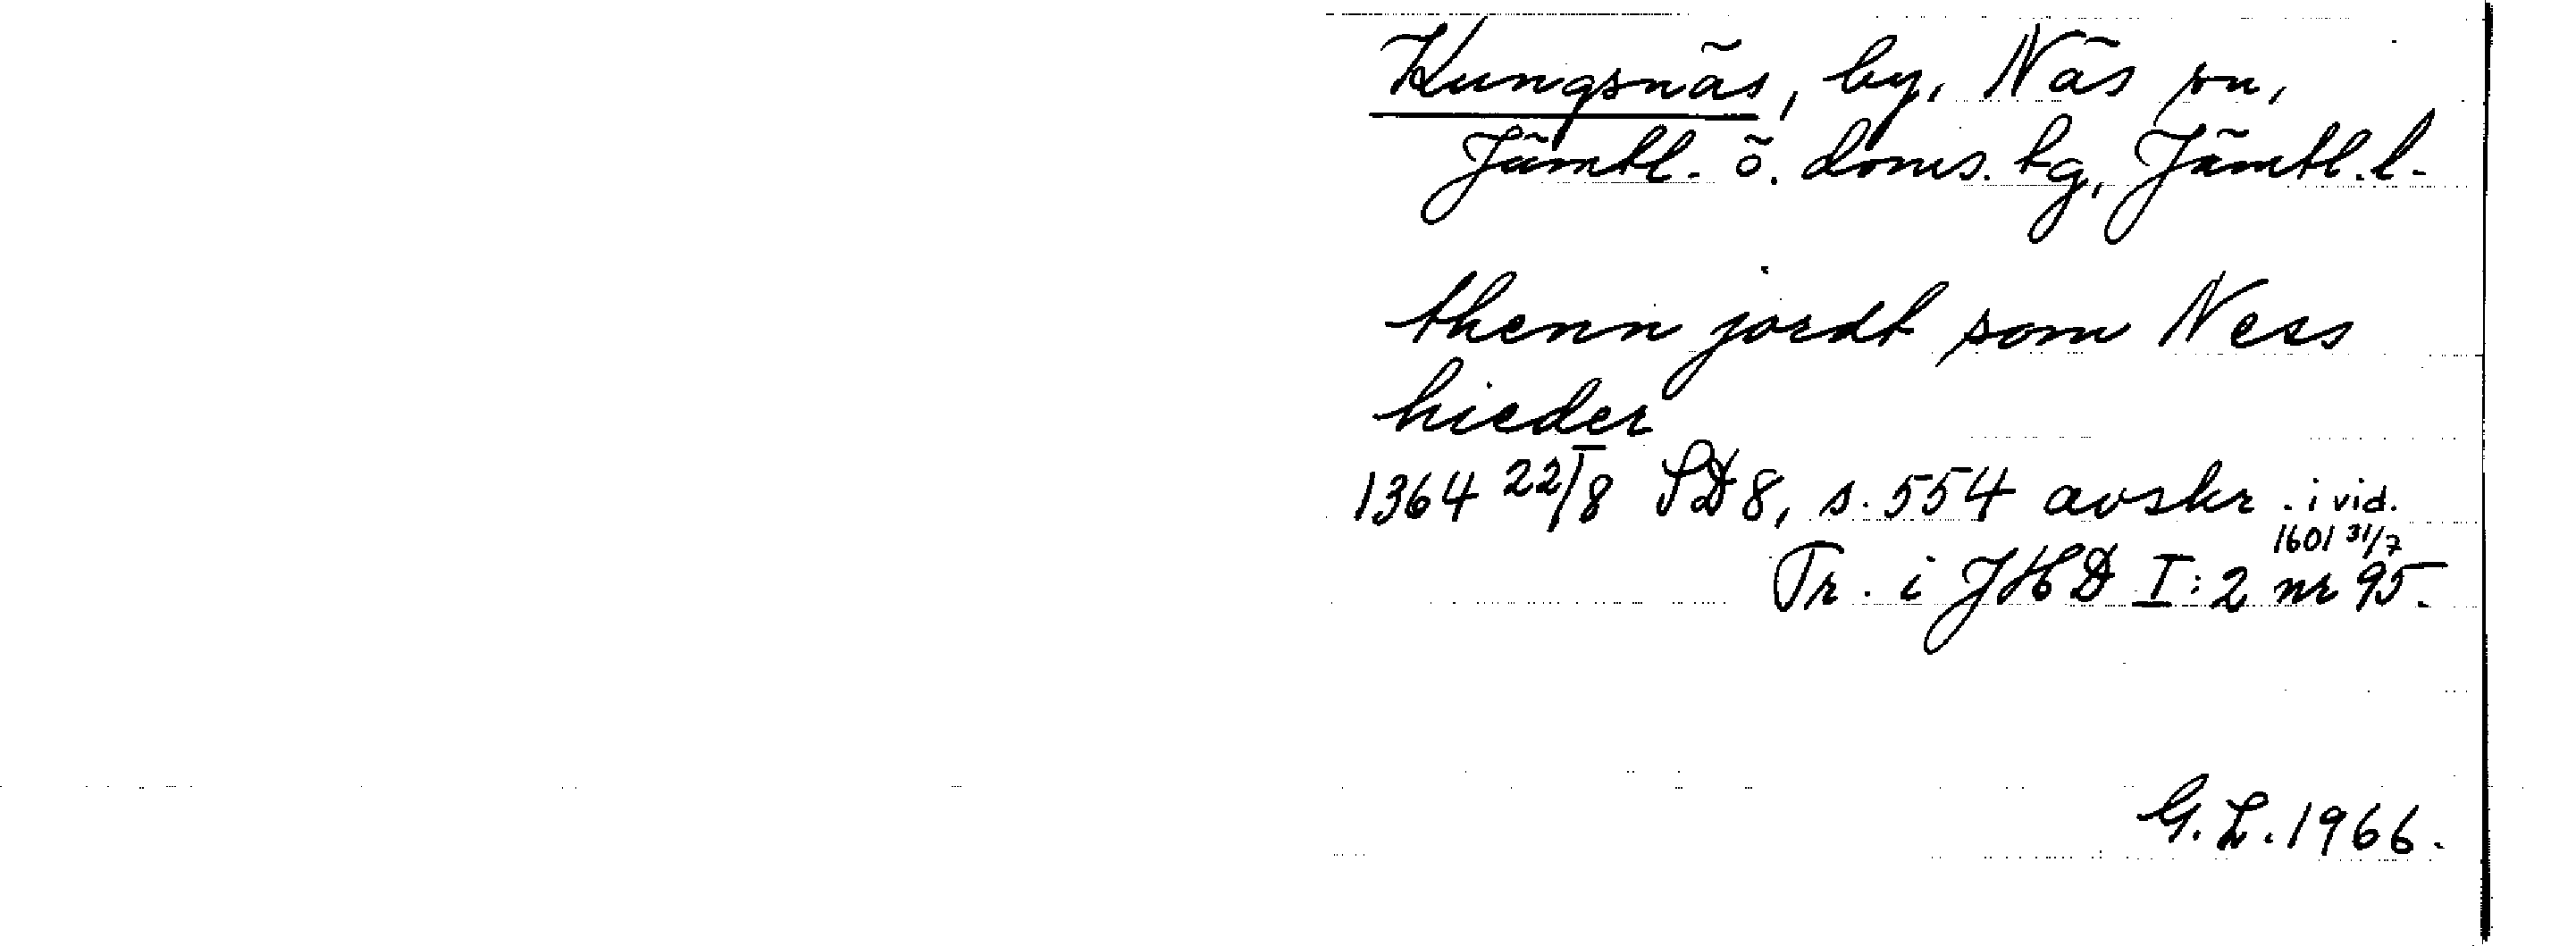 Kungsnäs, by, Näs sn,
Jämtl. ö. doms. tg, Jämtl. l.
thenn jordt som Ness
hieder
1364 22/8 SD 8, s. 554 avskr. i vid.
1601 31/7
Tr. i JHD I:2 nr 95.
G.L. 1966.